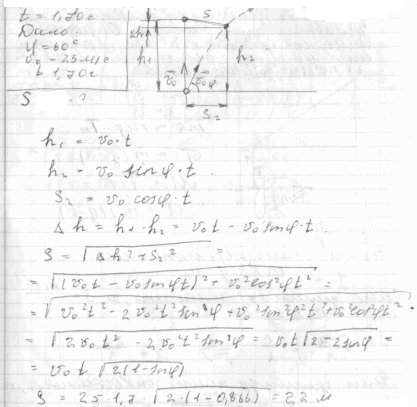 t = 1,70 c
Дано
φ = 60°
v₀ - 25 м/с
t 1,70 c
S ?
S
Δh
h₁
h₂
v₀
v₀ φ
S₂
h₁ = v₀ · t
h₂ - v₀ sinφ · t
S₂ = v₀ cosφ · t
Δh = h₁ - h₂ = v₀t - v₀ sinφ · t
S = √(Δh² + S₂²) =
= √((v₀t - v₀ sinφt)² + v₀² cos²φt²) =
= √(v₀²t² - 2v₀²t² sinφ + v₀² sin²φ t² + v₀² cos²φt²) .
= √(2v₀t² - 2v₀²t² sinφ) = v₀t √(2 - 2sinφ) =
= v₀t √(2(1 - sinφ))
S = 25 · 1,7 · √(2 · (1 - 0,866)) = 22 м